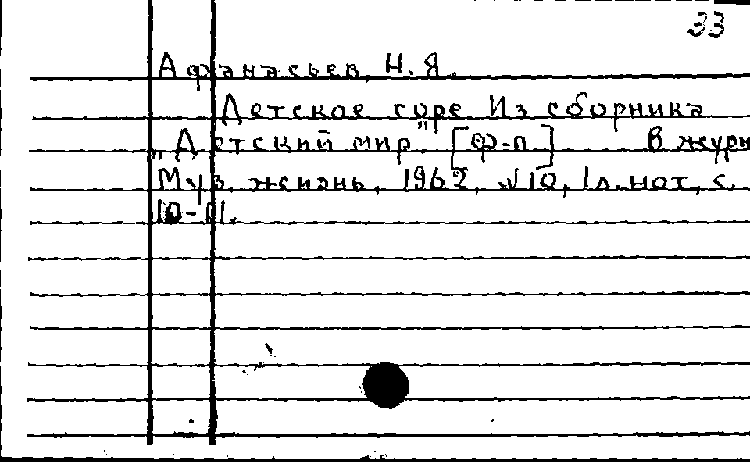 33
Афанасьев, Н. Я.
Детское горе. Из сборника
"Детский мир". [Ф-п] В журн
Муз. жизнь, 1962, №10, 1л. нот, с.
10-11.